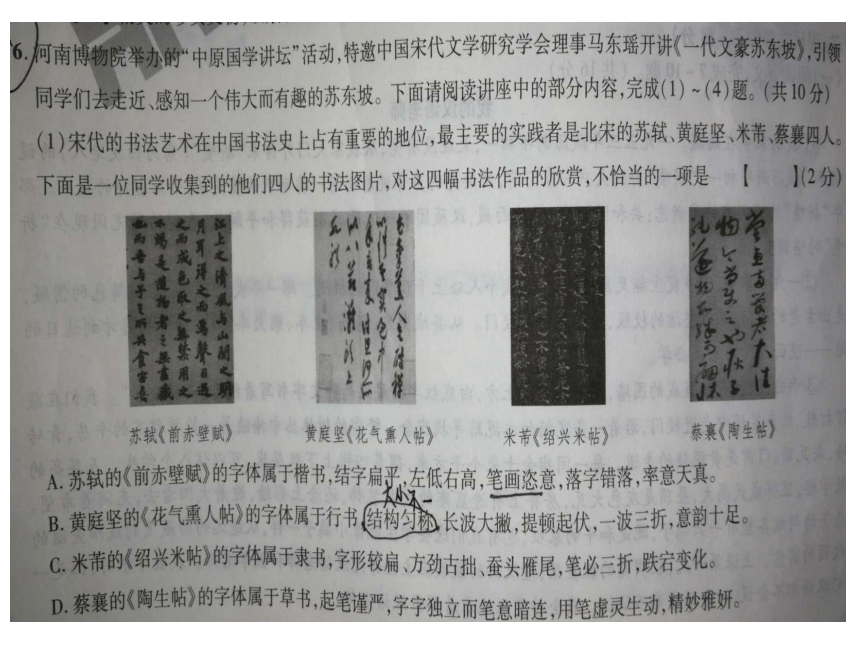 6.河南博物院举办的“中原国学讲坛”活动,特邀中国宋代文学研究学会理事马东瑶开讲《一代文豪苏东坡》,引领
同学们去走近、感知一个伟大而有趣的苏东坡。下面请阅读讲座中的部分内容,完成(1)~(4)题。(共10分)
(1)宋代的书法艺术在中国书法史上占有重要的地位,最主要的实践者是北宋的苏轼、黄庭坚、米芾、蔡襄四人。
下面是一位同学收集到的他们四人的书法图片,对这四幅书法作品的欣赏,不恰当的一项是 【 】(2分)
江上之清风与山间之明
月耳得之而为声目遇
之而成色取之无禁用之
不竭是造物者之无尽藏
也而吾与子之所共食客喜
苏轼《前赤壁赋》
黄庭坚《花气熏人帖》
米芾《绍兴米帖》
蔡襄《陶生帖》
A.苏轼的《前赤壁赋》的字体属于楷书,结字扁平,左低右高,笔画恣意,落字错落,率意天真。
大小不一
B.黄庭坚的《花气熏人帖》的字体属于行书,结构匀称,长波大撇,提顿起伏,一波三折,意韵十足。
C.米芾的《绍兴米帖》的字体属于隶书,字形较扁、方劲古拙、蚕头雁尾,笔必三折,跌宕变化。
D.蔡襄的《陶生帖》的字体属于草书,起笔谨严,字字独立而笔意暗连,用笔虚灵生动,精妙雅妍。